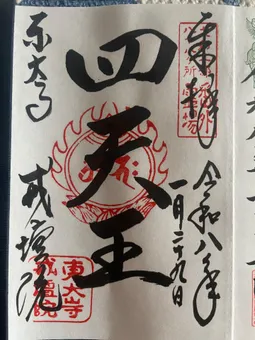 奉拝
令和八年
一月二十九日
四天王
東大寺
戒壇院
東大寺
戒壇院